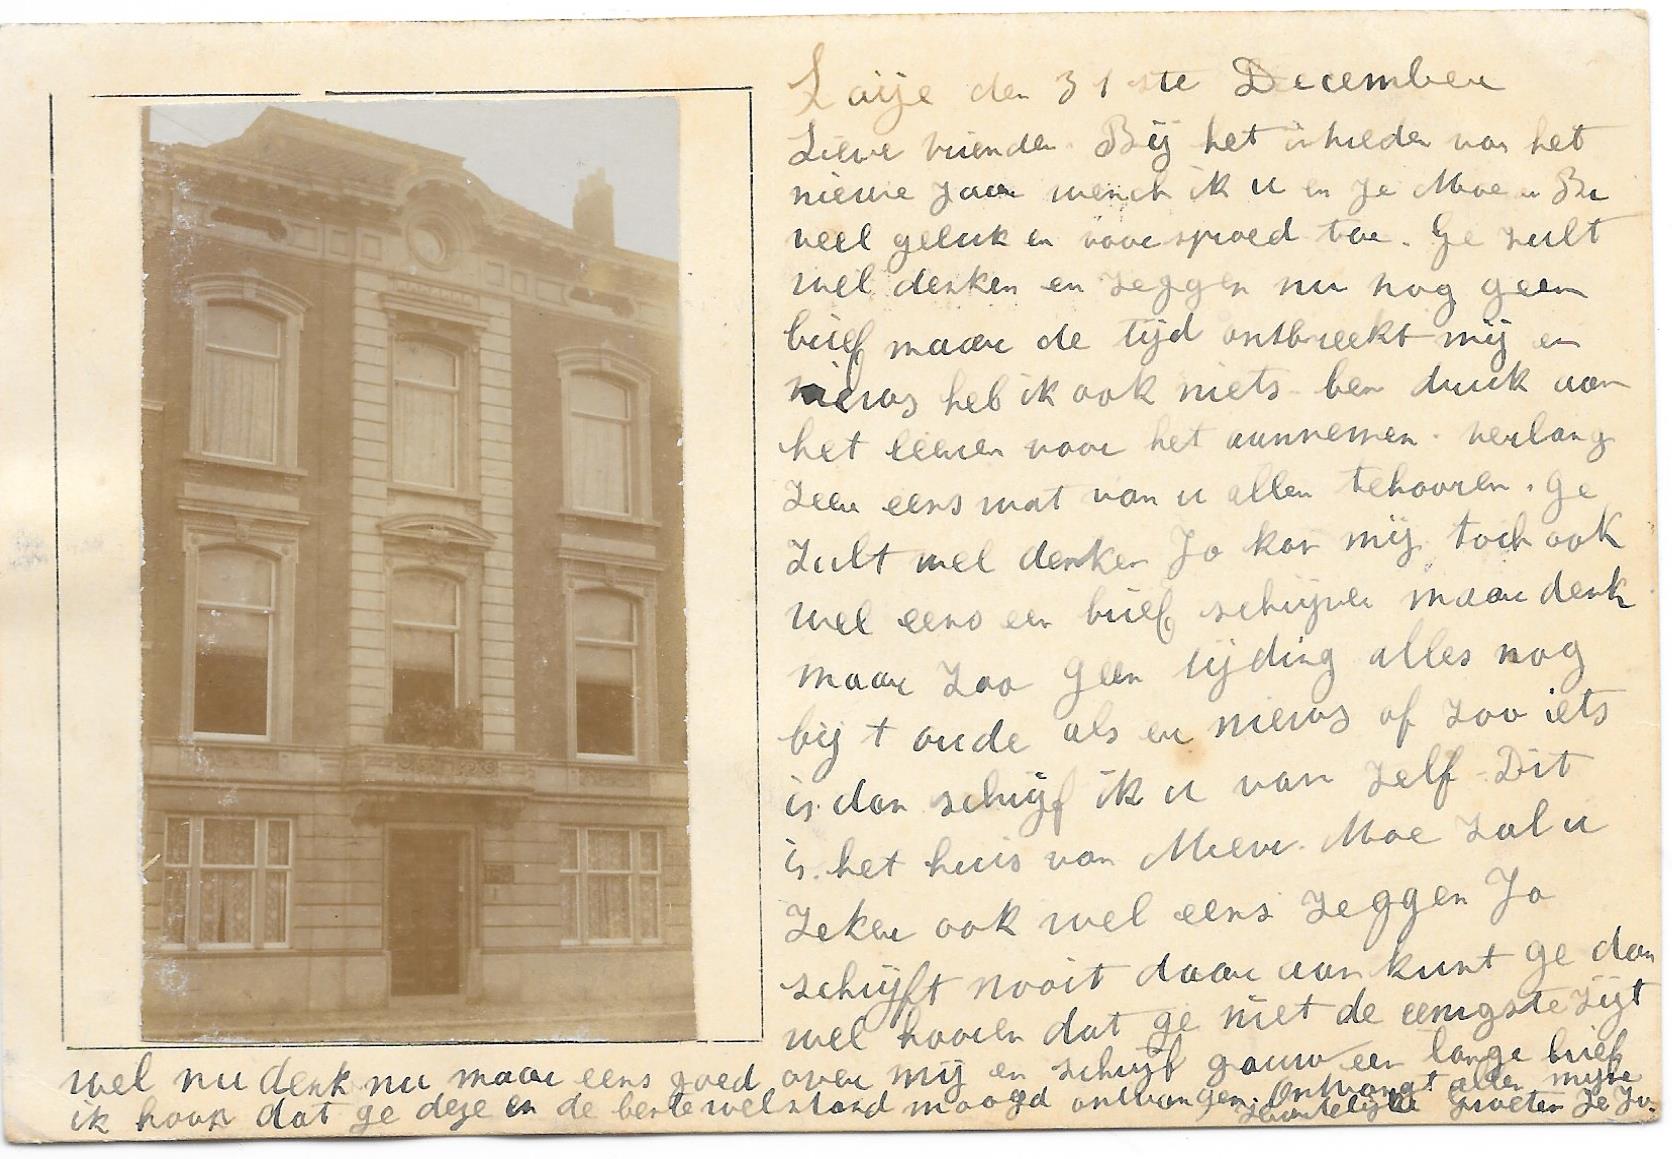 den 31ste December
Lieve vrienden Bij het intreden van het
nieuwe jaar wensch ik u en je Moe en Br
veel geluk en voorspoed toe. Ge zult
wel denken en zeggen nu nog geen
brief maar de tijd ontbreekt mij en
nieuws heb ik ook niets ben druk aan
het leeren voor het aannemen. verlang
zeer eens wat van u allen tehooren. ge
zult wel denken Jo kon mij toch ook
wel eens een brief schrijven maar denk
maar zoo geen tijding alles nog
bij t oude als er nieuws of zoo iets
is dan schrijf ik u van zelf. Dit
is het huis van Moe zal u
zeker ook wel eens zeggen Jo
schrijft nooit daar aan kunt ge dan
wel hooren dat ge niet de eenigste zijt
wel nu denk nu maar eens goed over mij en schrijf gauw een lange brief
ik hoop dat ge deze in de beste welstand moogd ontvangen. Ontvangt allen mijne
hartelijke groeten Je Jo.